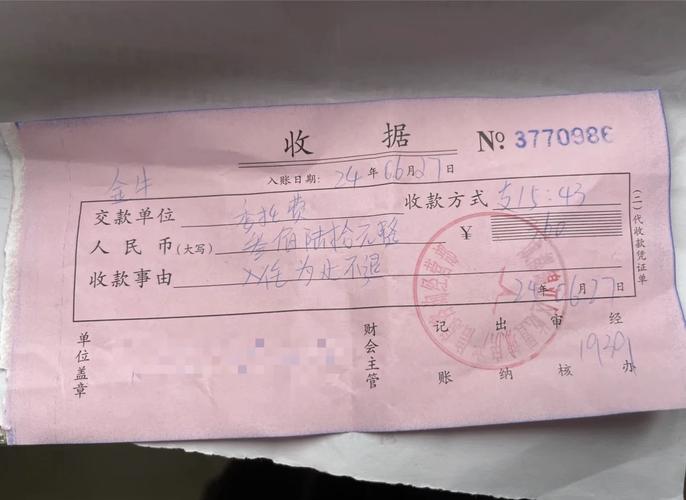 收 据
№ 3770986
金牛
入账日期: 24 年 06 月 27 日
交款单位 委托费 收款方式 支15:43
人民币(大写) 叁佰陆拾元整 ¥
收款事由 入住为止不退
24年 06月27日
(二)代收款凭证单
单位盖章
财会主管
记账
出纳
审核
经办